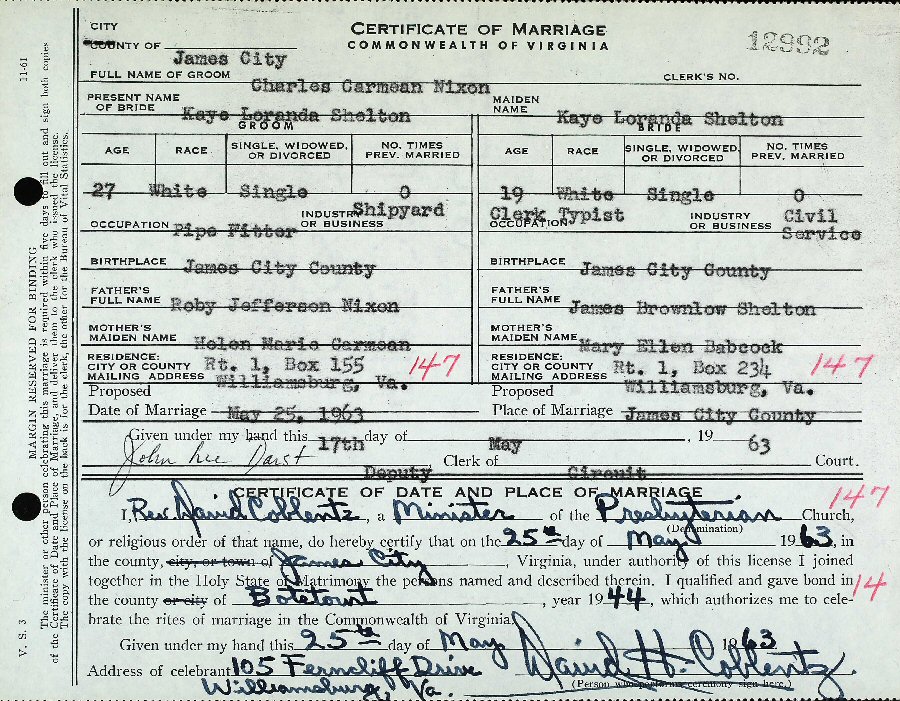 CITY
COUNTY OF James City
CERTIFICATE OF MARRIAGE
COMMONWEALTH OF VIRGINIA
12992
FULL NAME OF GROOM Charles Carmean Nixon CLERK'S NO.
PRESENT NAME OF BRIDE Kaye Loranda Shelton MAIDEN NAME Kaye Loranda Shelton
GROOM BRIDE
AGE RACE SINGLE, WIDOWED, OR DIVORCED NO. TIMES PREV. MARRIED AGE RACE SINGLE, WIDOWED, OR DIVORCED NO. TIMES PREV. MARRIED
27 White Single 0 19 White Single 0
OCCUPATION Pipe Fitter INDUSTRY OR BUSINESS Shipyard OCCUPATION Clerk Typist INDUSTRY OR BUSINESS Civil Service
BIRTHPLACE James City County BIRTHPLACE James City County
FATHER'S FULL NAME Roby Jefferson Nixon FATHER'S FULL NAME James Brownlow Shelton
MOTHER'S MAIDEN NAME Helen Marie Carmean MOTHER'S MAIDEN NAME Mary Ellen Babcock
RESIDENCE: CITY OR COUNTY MAILING ADDRESS Rt. 1, Box 155 Williamsburg, Va. 147 RESIDENCE: CITY OR COUNTY MAILING ADDRESS Rt. 1, Box 234 Williamsburg, Va. 147
Proposed Date of Marriage May 25, 1963 Proposed Place of Marriage James City County
Given under my hand this 17th day of May, 19 63
John Lee Darst Deputy Clerk of Circuit Court.
CERTIFICATE OF DATE AND PLACE OF MARRIAGE 147
I, Rev. David Coblentz, a Minister of the Presbyterian Church,
(Denomination)
or religious order of that name, do hereby certify that on the 25th day of May 1963, in
the county, city, or town of James City, Virginia, under authority of this license I joined
together in the Holy State of Matrimony the persons named and described therein. I qualified and gave bond in 14
the county or city of Botetourt, year 1944, which authorizes me to cele-
brate the rites of marriage in the Commonwealth of Virginia.
Given under my hand this 25th day of May 1963
Address of celebrant 105 Ferncliff Drive David H. Coblentz
Williamsburg, Va. (Person who performs ceremony sign here.)
V. S. 3 11-61
MARGIN RESERVED FOR BINDING
The minister or other person celebrating this marriage is required within five days to fill out and sign both copies
of the Certificate of Date and Place of Marriage, and deliver them to the clerk who issued the license.
The copy with the license on the back is for the clerk, the other for the Bureau of Vital Statistics.